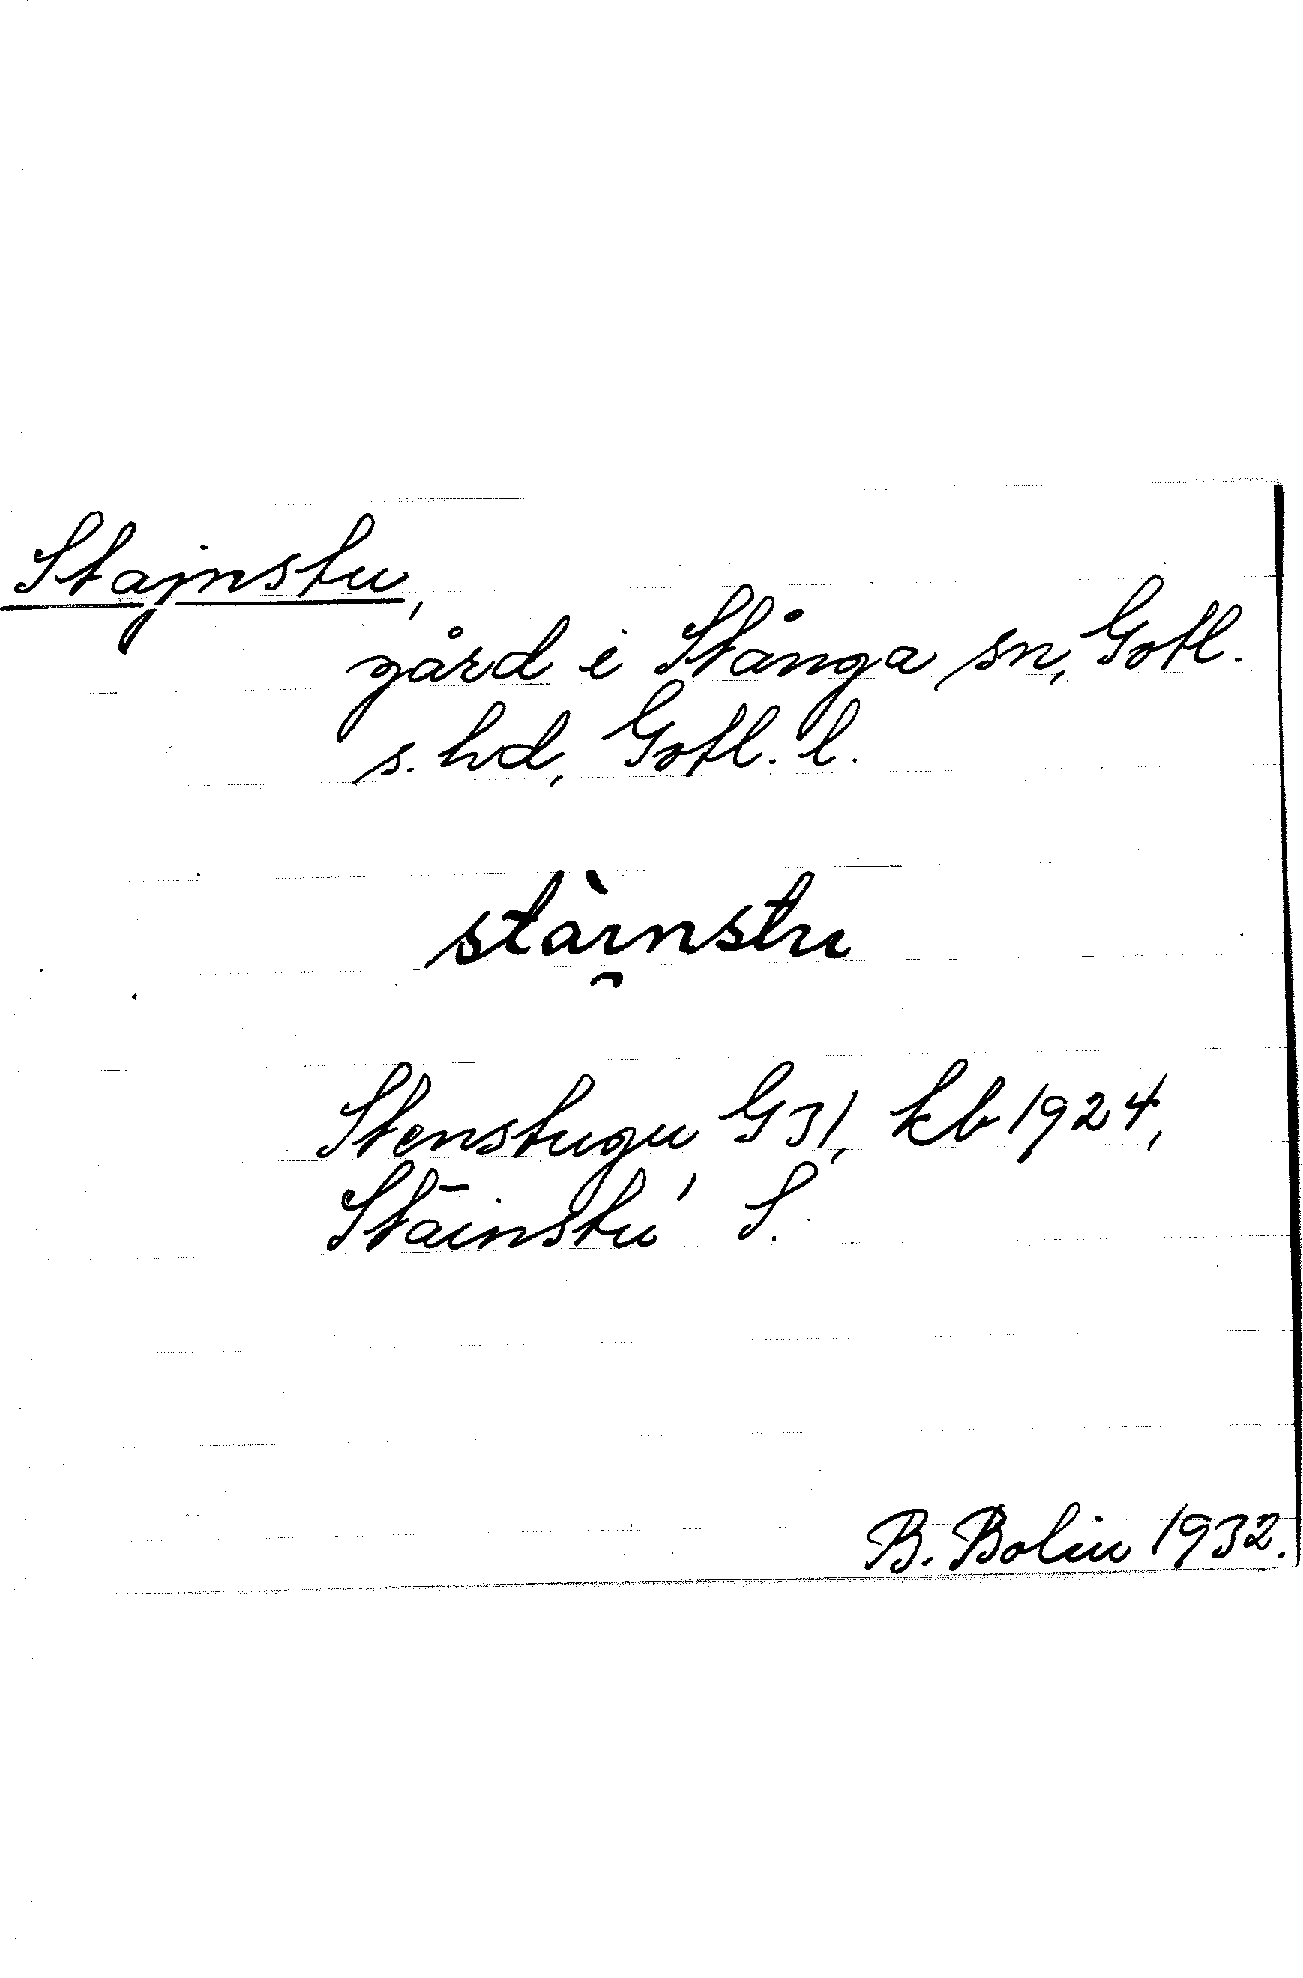 Stajnstu,
gård i Stånga sn, Gotl.
s. hd, Gotl. l.
stàı̯nstu
Stenstugu G 31, kb 1924,
Stāinstu' S.
B. Bolin 1932.